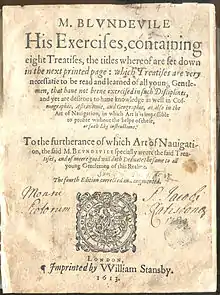 M. BLVNDEVILE
His Exercises, containing
eight Treatises, the titles whereof are set down
in the next printed page: which Treatises are very
necessarie to be read and learned of all young Gentle-
men, that haue not beene exercised in such Disciplines,
and yet are desirous to haue knowledge as well in Cos-
mographie, Astronomie, and Geographie, as also in the
Art of Nauigation, in which Art it is impossible
to profite without the helpe of these,
or such like instructions.
To the furtherance of which Art of Nauigati-
on, the said M. BLVNDEVILE specially wrote the said Trea-
tises, and of meere good will doth dedicate the same to all
young Gentlemen of this Realme.
The fourth Edition corrected and augmented.
LONDON,
Imprinted by William Stansby.
1613.